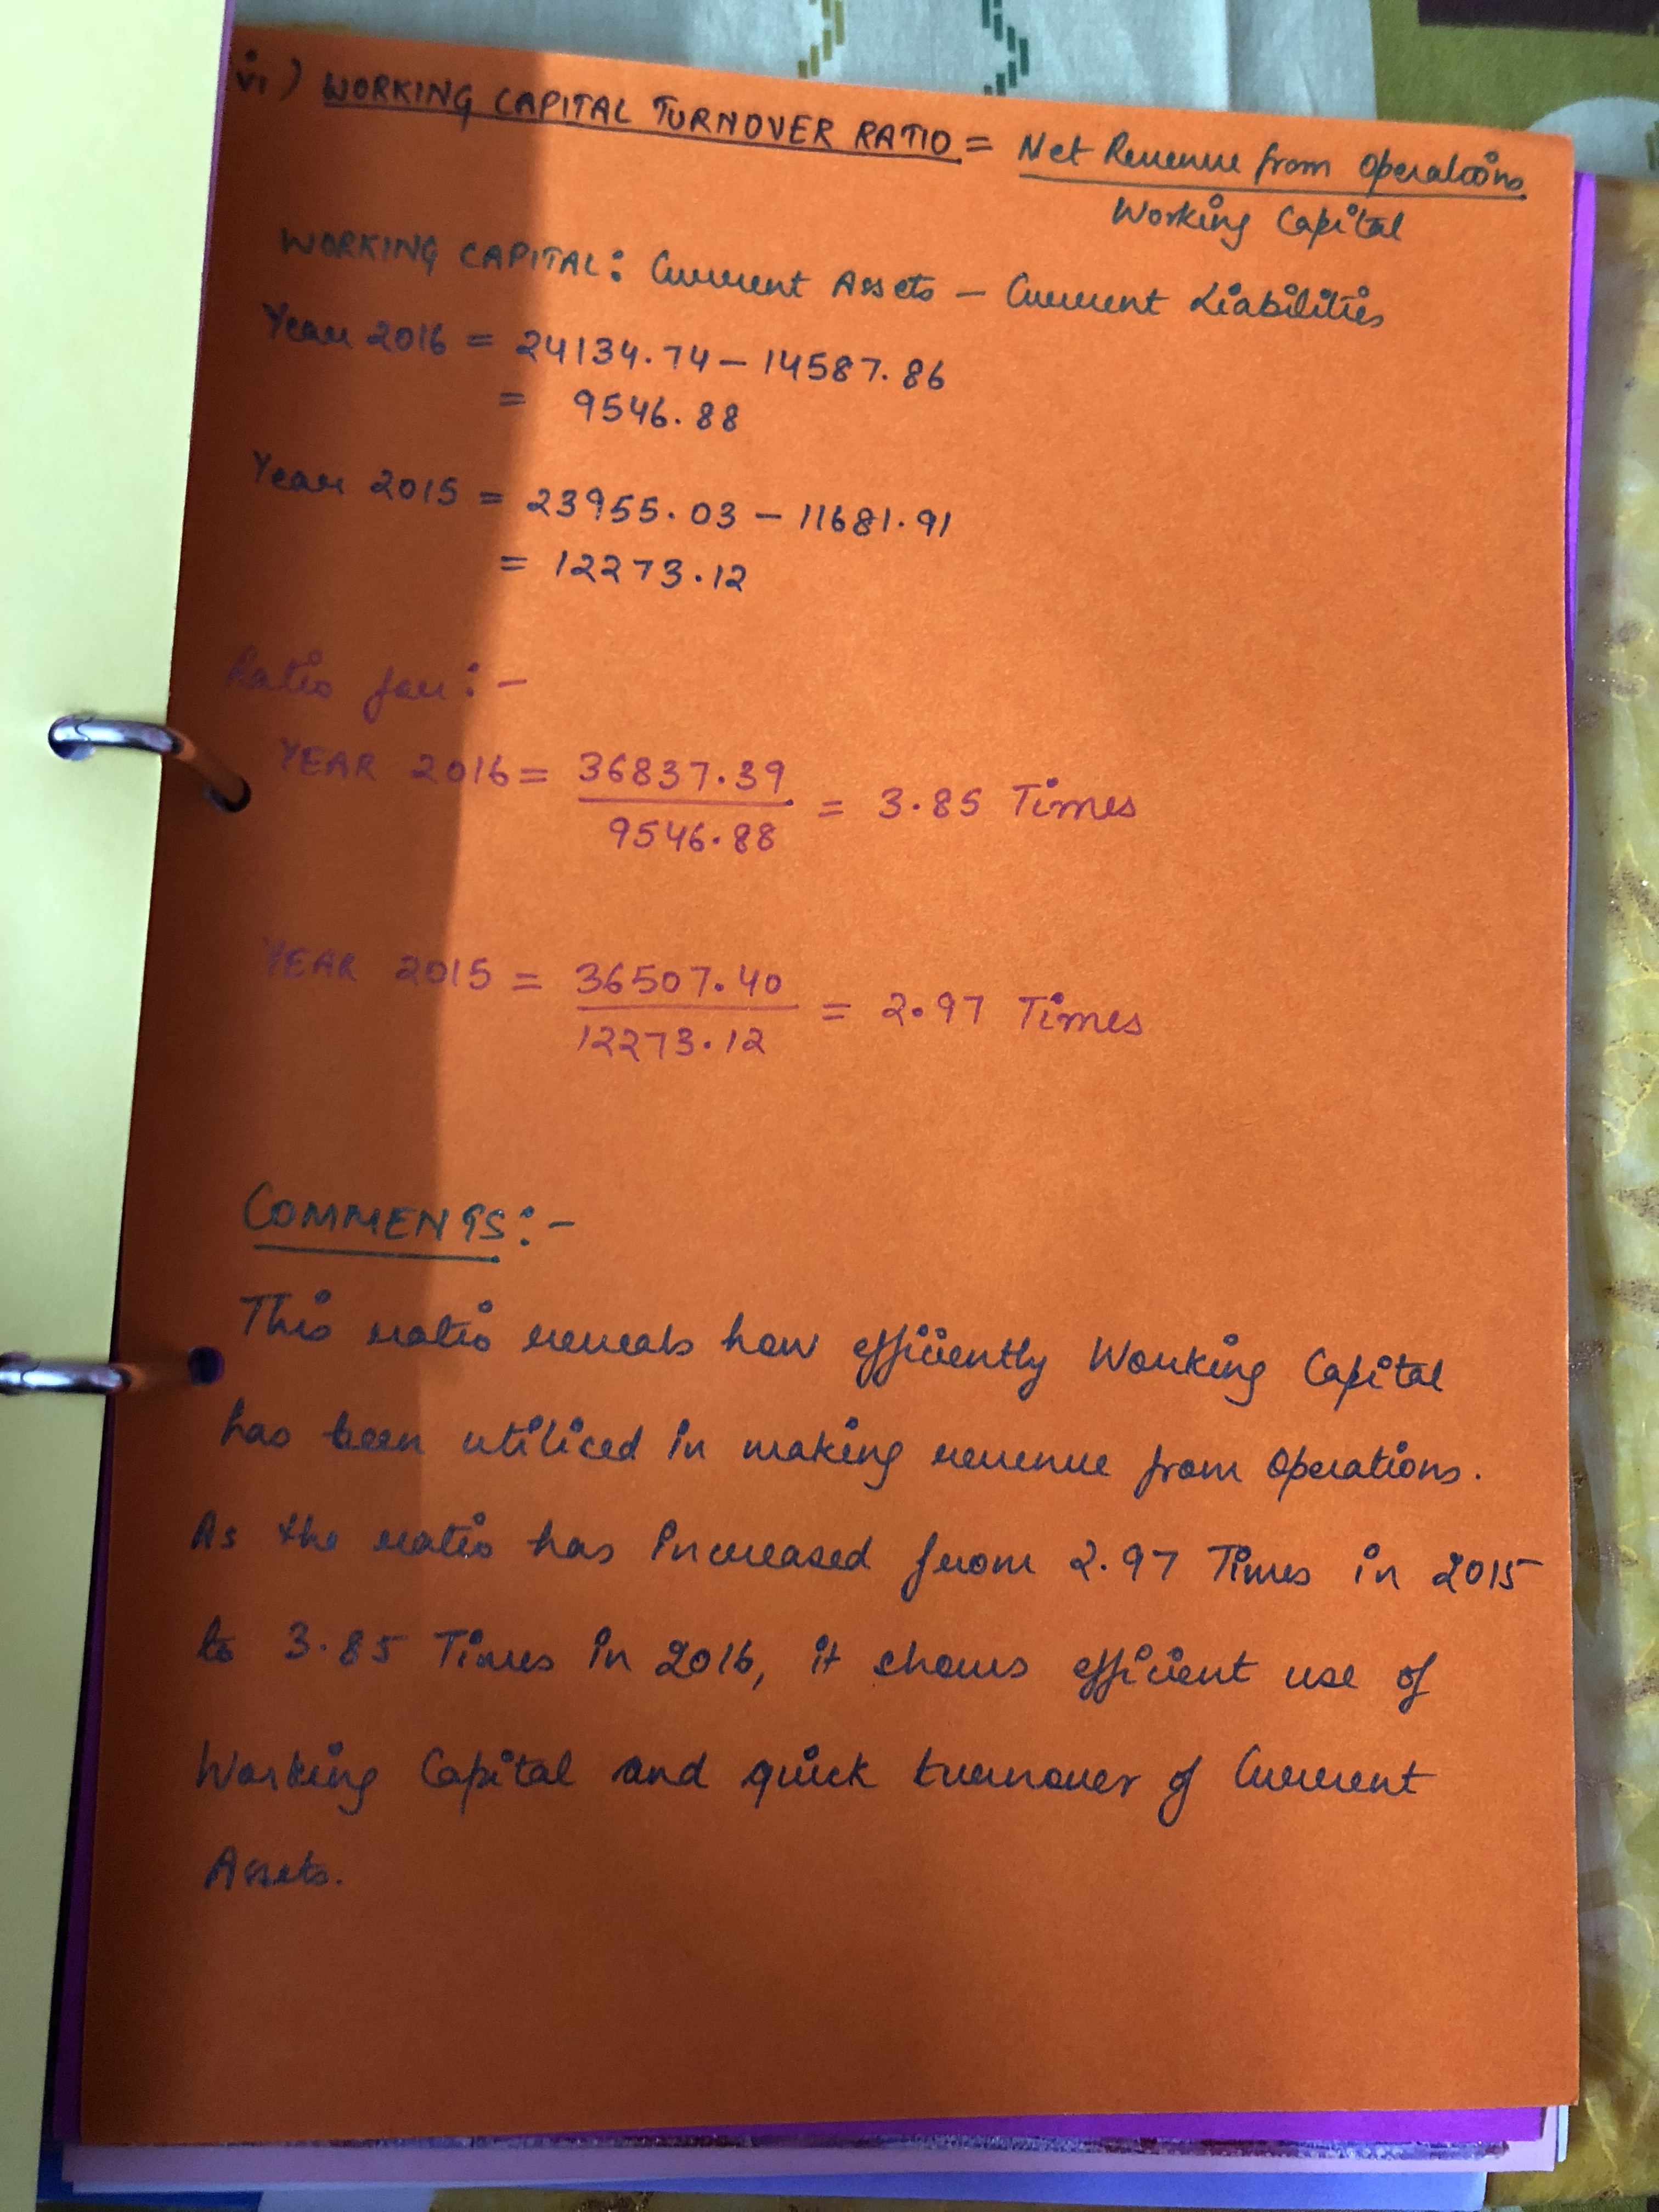 vi) WORKING CAPITAL TURNOVER RATIO = Net Revenue from Operations
Working Capital
WORKING CAPITAL: Current Assets – Current Liabilities
Year 2016 = 24134.74 – 14587.86
= 9546.88
Year 2015 = 23955.03 – 11681.91
= 12273.12
Ratio for:-
YEAR 2016 = 36837.39
9546.88
= 3.85 Times
YEAR 2015 = 36507.40
12273.12
= 2.97 Times
COMMENTS:-
This ratio reveals how efficiently Working Capital
has been utilized in making revenue from operations.
As the ratio has increased from 2.97 Times in 2015
to 3.85 Times in 2016, it shows efficient use of
Working Capital and quick turnover of Current
Assets.